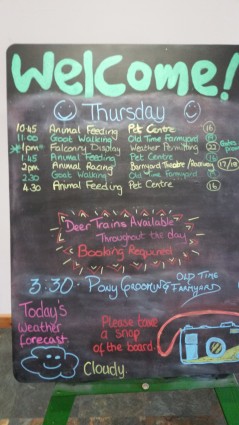 Welcome!
Thursday
10:45 Animal Feeding Pet Centre 16
11:00 Goat Walking Old Time Farmyard 19
1pm Falconry Display Weather Permitting 22
1:45 Animal Feeding Pet Centre 16
2pm Animal Racing Barnyard Theatre / Raceway 17/18
2.30 Goat Walking Old Time Farmyard 19
4.30 Animal Feeding Pet Centre 16
Deer Trains Available
Throughout the day!
Booking Required
3:30 · Pony Grooming · OLD TIME FARMYARD
Today's
Weather
forecast.
Cloudy.
Please take
a snap
of the board